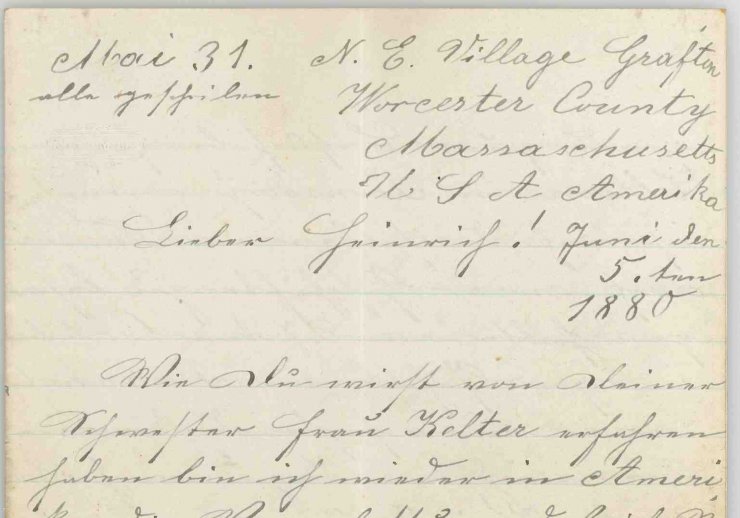 Mai 31. N. E. Village Grafton
alle geschrieben Worcester County
Massachusetts
U S A Amerika
Lieber Heinrich! Juni den
5. ten
1880
Wie Du wirst von Deiner
Schwester Frau Kelter erfahren
haben bin ich wieder in Ameri